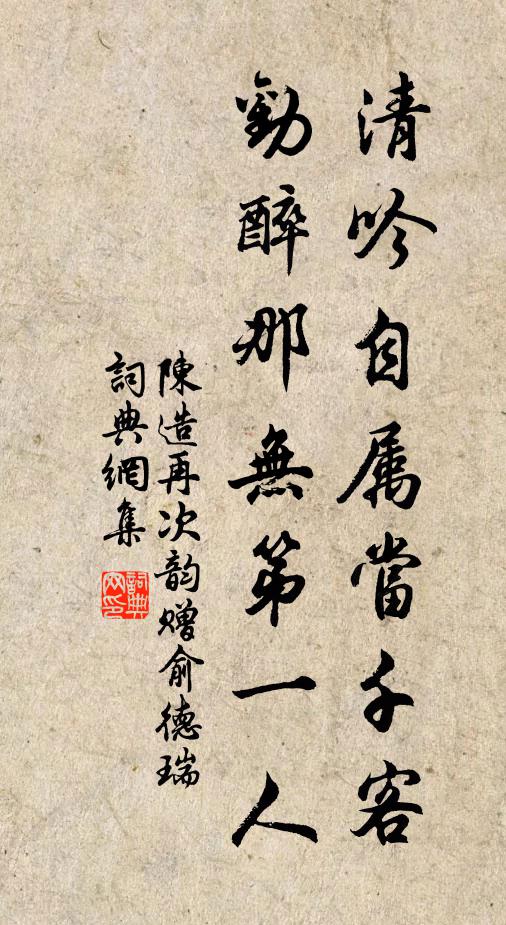 清吟自属當千客
勸醉那無第一人
陳造再次韵贈俞德瑞
詞典網集
詞典
网印